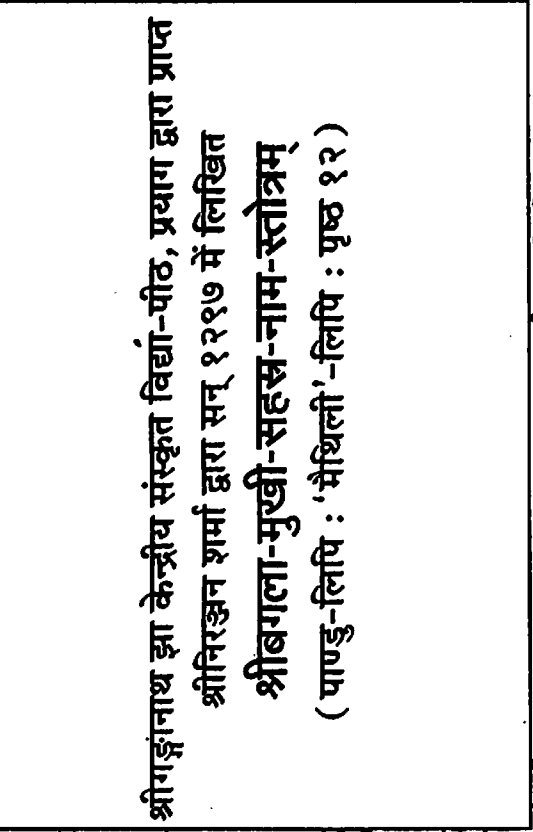 श्रीगङ्गानाथ झा केन्द्रीय संस्कृत विद्या-पीठ, प्रयाग द्वारा प्राप्त
श्रीनिरञ्जन शर्मा द्वारा सन् १२९७ में लिखित
श्रीबगला-मुखी-सहस्र-नाम-स्तोत्रम्
( पाण्डु-लिपि : 'मैथिली'-लिपि : पृष्ठ १२ )